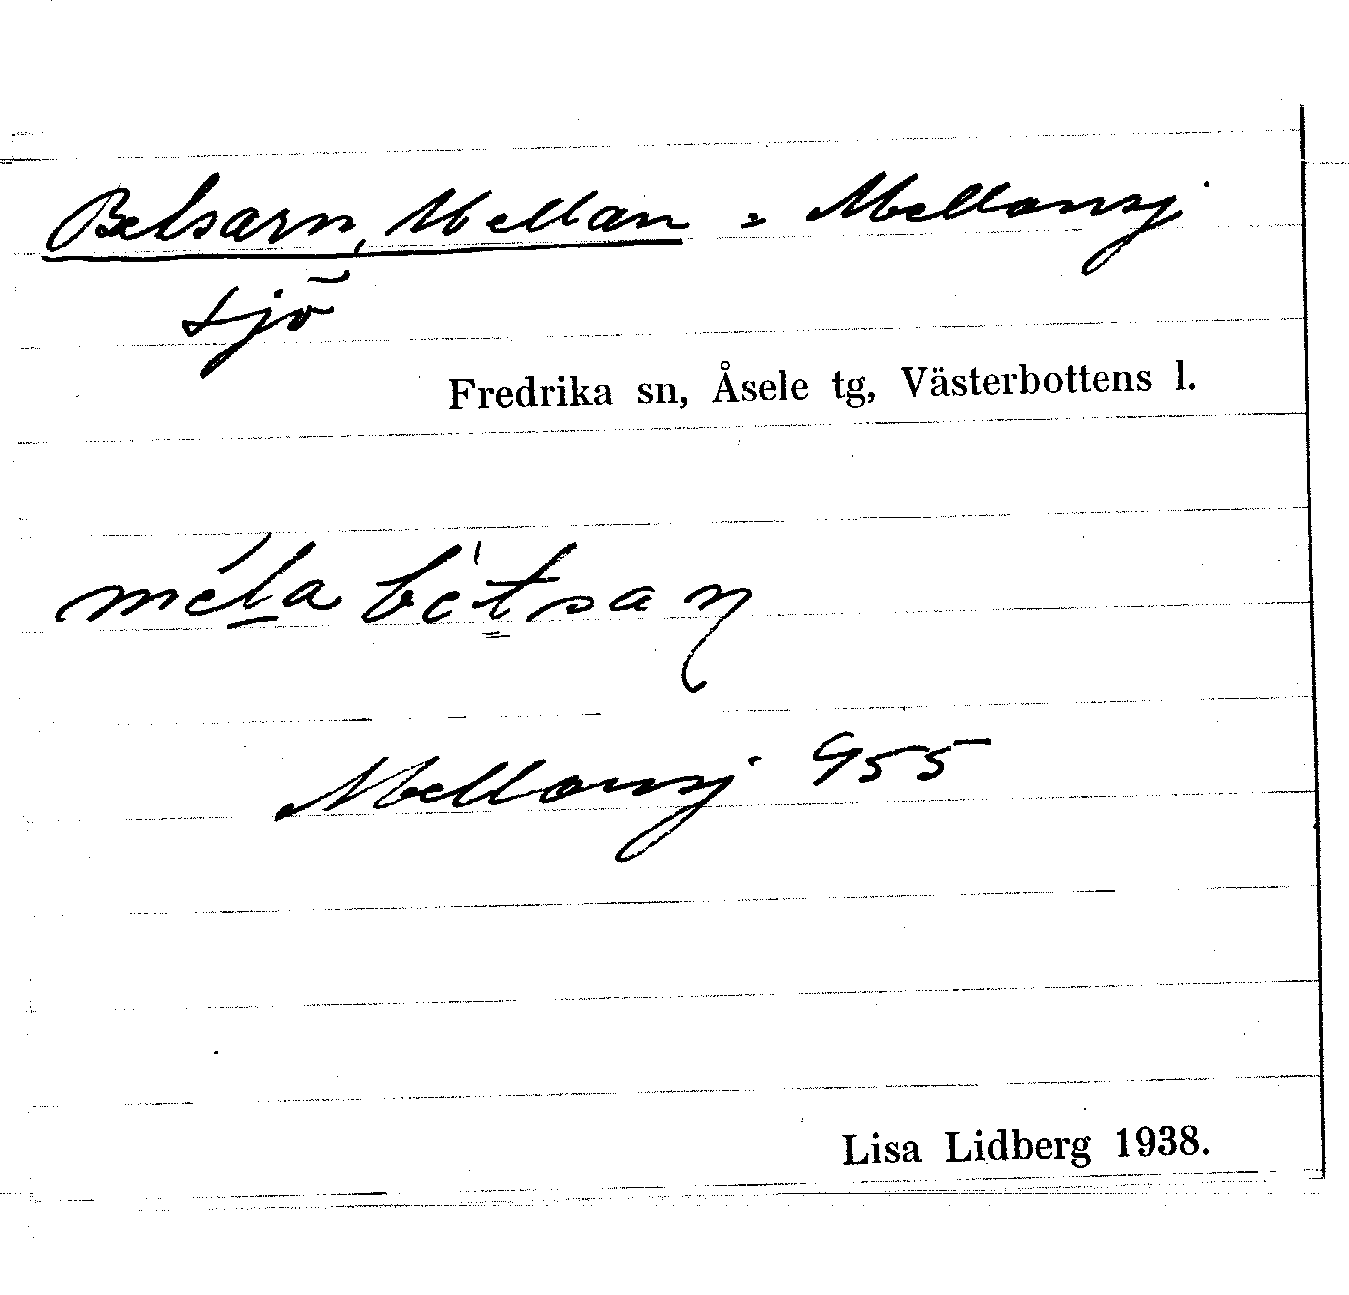 Betsarn, Mellan = Mellansj
sjö
Fredrika sn, Åsele tg, Västerbottens l.
méla bétsaɳ
Mellansj 955
Lisa Lidberg 1938.